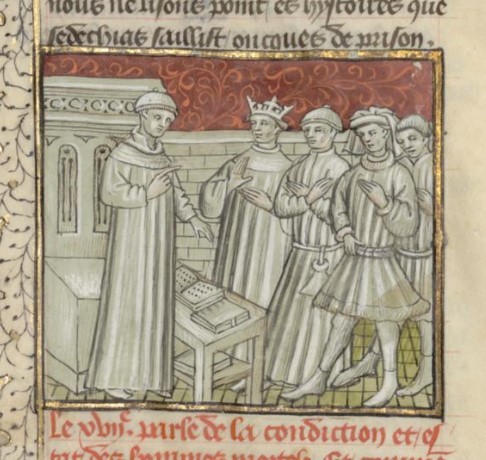 nous ne lisons point es hystoires que
sedechias saillist oncques de prison.
Le xviiie. parle de la condiction et es
tat des hommes mortelz. Et